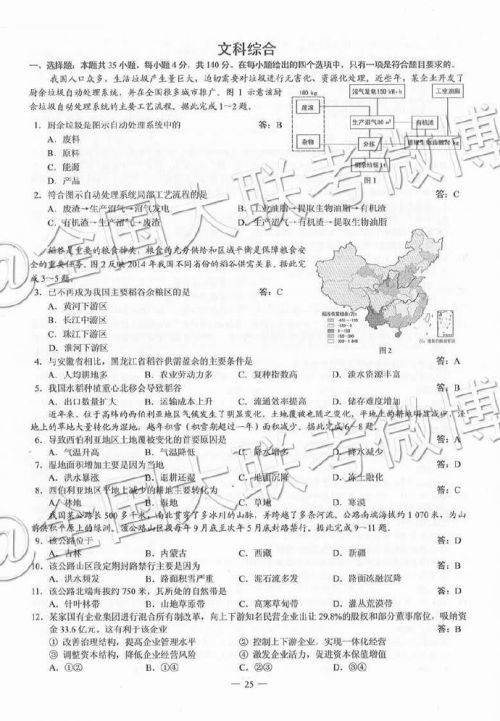 文科综合
一、选择题：本题共35小题，每小题4分，共140分。在每小题给出的四个选项中，只有一项是符合题目要求的。
我国人口众多，生活垃圾产生量巨大，迫切需要对垃圾进行无害化、资源化处理。近些年，某企业开发了
厨余垃圾自动处理系统，并在全国推广。图1示意该厨
余垃圾自动处理系统的主要工艺流程。据此完成1～2题。
1. 厨余垃圾是图示自动处理系统中的 答：B
A. 废料
B. 原料
C. 能源
D. 产品
180 kg
废渣
杂物
沼气发电150 kW·h
工业油脂
生产沼气80 m³
有机渣
分拣
厨余垃圾1 t
图1
2. 符合图示自动处理系统局部工艺流程的是 答：C
A. 废渣→生产沼气→沼气发电
B. 工业油脂→提取生物油脂→有机渣
C. 有机渣→生产沼气→沼气发电
D. 生产沼气→有机渣→提取生物油脂
稻谷是重要的粮食种类，粮食的充分供给和区域平衡是保障粮食安
全的重要任务。图2反映2014年我国不同省份的稻谷供需关系。据此完
成3～5题。
3. 已不再成为我国主要稻谷余粮区的是 答：C
A. 黄河下游区
B. 长江中游区
C. 珠江下游区
D. 淮河下游区
图2
4. 与安徽省相比，黑龙江省稻谷供需盈余的主要条件是 答：A
A. 人均耕地多 B. 农业劳动力多 C. 复种指数高 D. 淡水资源丰富
5. 我国水稻种植重心北移会导致稻谷 答：B
A. 出口数量扩大 B. 运输成本上升 C. 流通效率提高 D. 储存难度增大
近年来，位于高纬的西伯利亚地区气候发生了明显变化，土地覆被也随之变化，平地上的耕地塌陷成穴，山地
上的草地大量转化为湿地，越年积雪（积雪期超过一年）面积减少。据此完成6～8题。
6. 导致西伯利亚地区土地覆被变化的首要原因是 答：A
A. 气温升高 B. 气温降低 C. 降水增多 D. 降水减少
7. 湿地面积增加主要是因为当地 答：D
A. 洪水暴涨 B. 退耕还湿 C. 地面沉陷 D. 冻土融化
8. 西伯利亚地区平地上减少的耕地主要转化为 答：A
A. 林地 C. 草地 D. 寒漠
9. 该公路位于 答：D
A. 吉林 B. 内蒙古 C. 西藏 D. 新疆
10. 该公路山区段定期封路禁行主要因为 答：B
A. 洪水频发 B. 路面积雪严重 C. 泥石流多发 D. 路面冻融沉降
11. 该公路北端海拔约750 m，其所处的自然带是 答：D
A. 针叶林带 B. 山地草原带 C. 高寒草甸带 D. 灌丛荒漠带
12. 某家国有企业集团进行混合所有制改革，向上下游知名民营企业出让29.8%的股权和部分董事席位，吸纳资
金33.6亿元。这有利于该企业 答：B
①改善治理结构，提高企业管理水平 ②控制上下游企业，实现一体化经营
③调整资本结构，降低企业经营风险 ④激发企业活力，促进国有资本保值增值
A. ①② B. ①④ C. ②③ D. ③④
— 25 —
@全国大联考微博